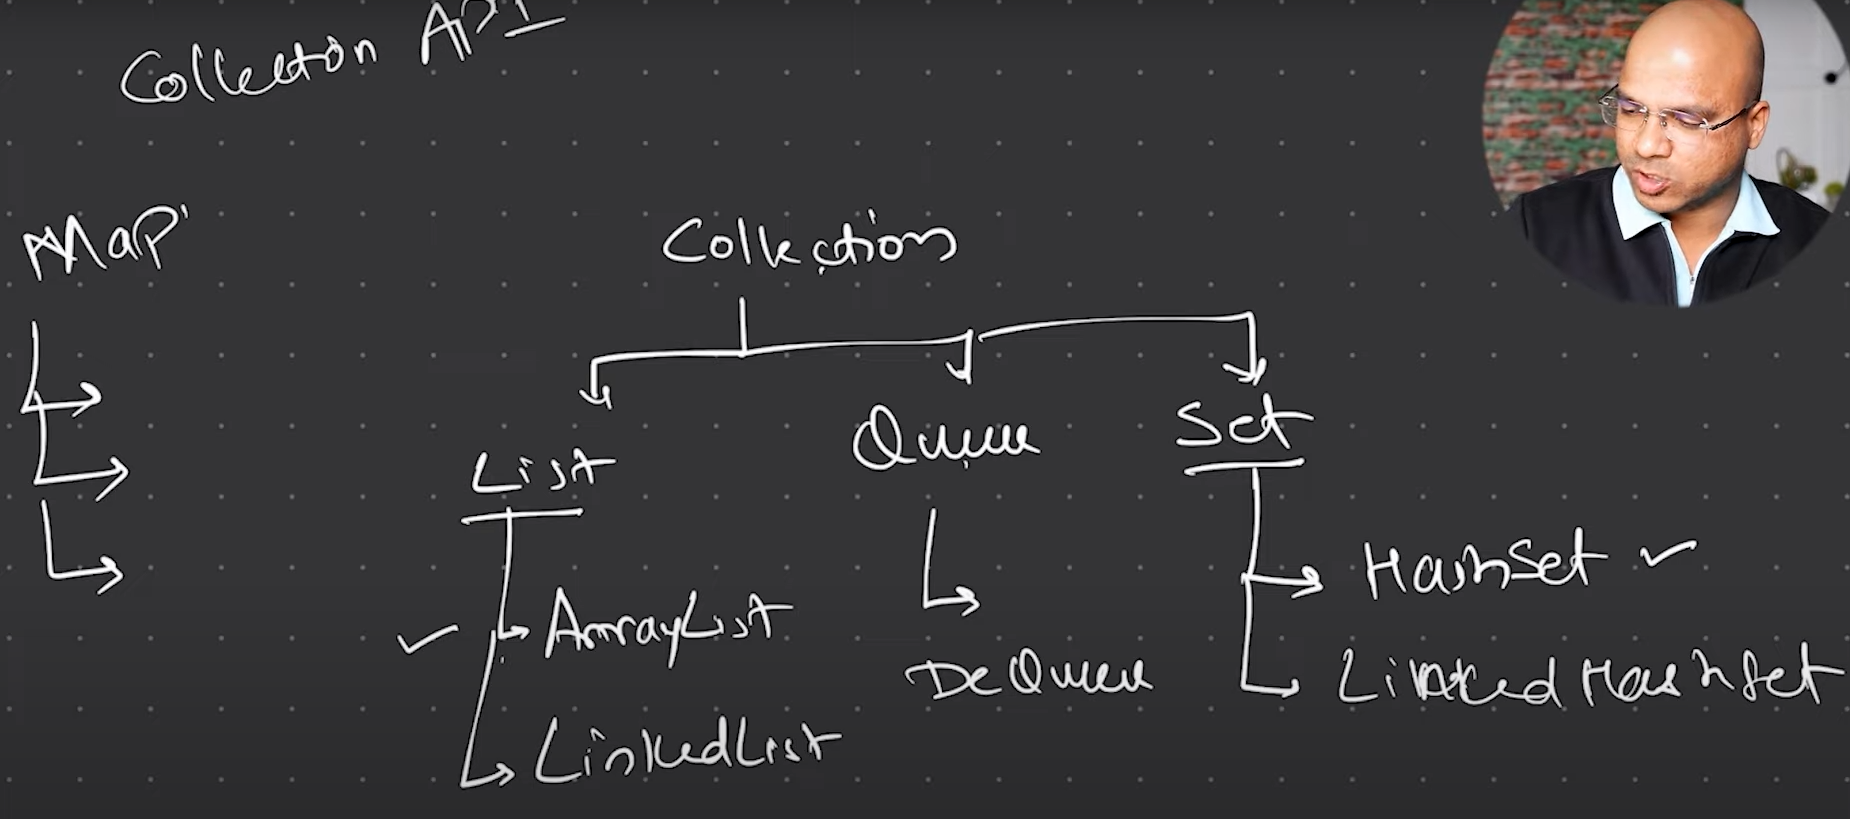 Collection API
Map
Collection
List
Queue
Set
ArrayList
LinkedList
DeQueue
HashSet
LinkedHashSet